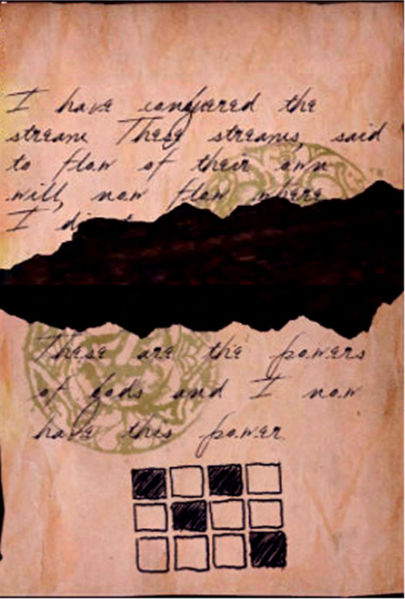 I have conquered the
stream These streams, said
to flow of their own
will, now flow where
I
These are the powers
of gods and I now
have this power